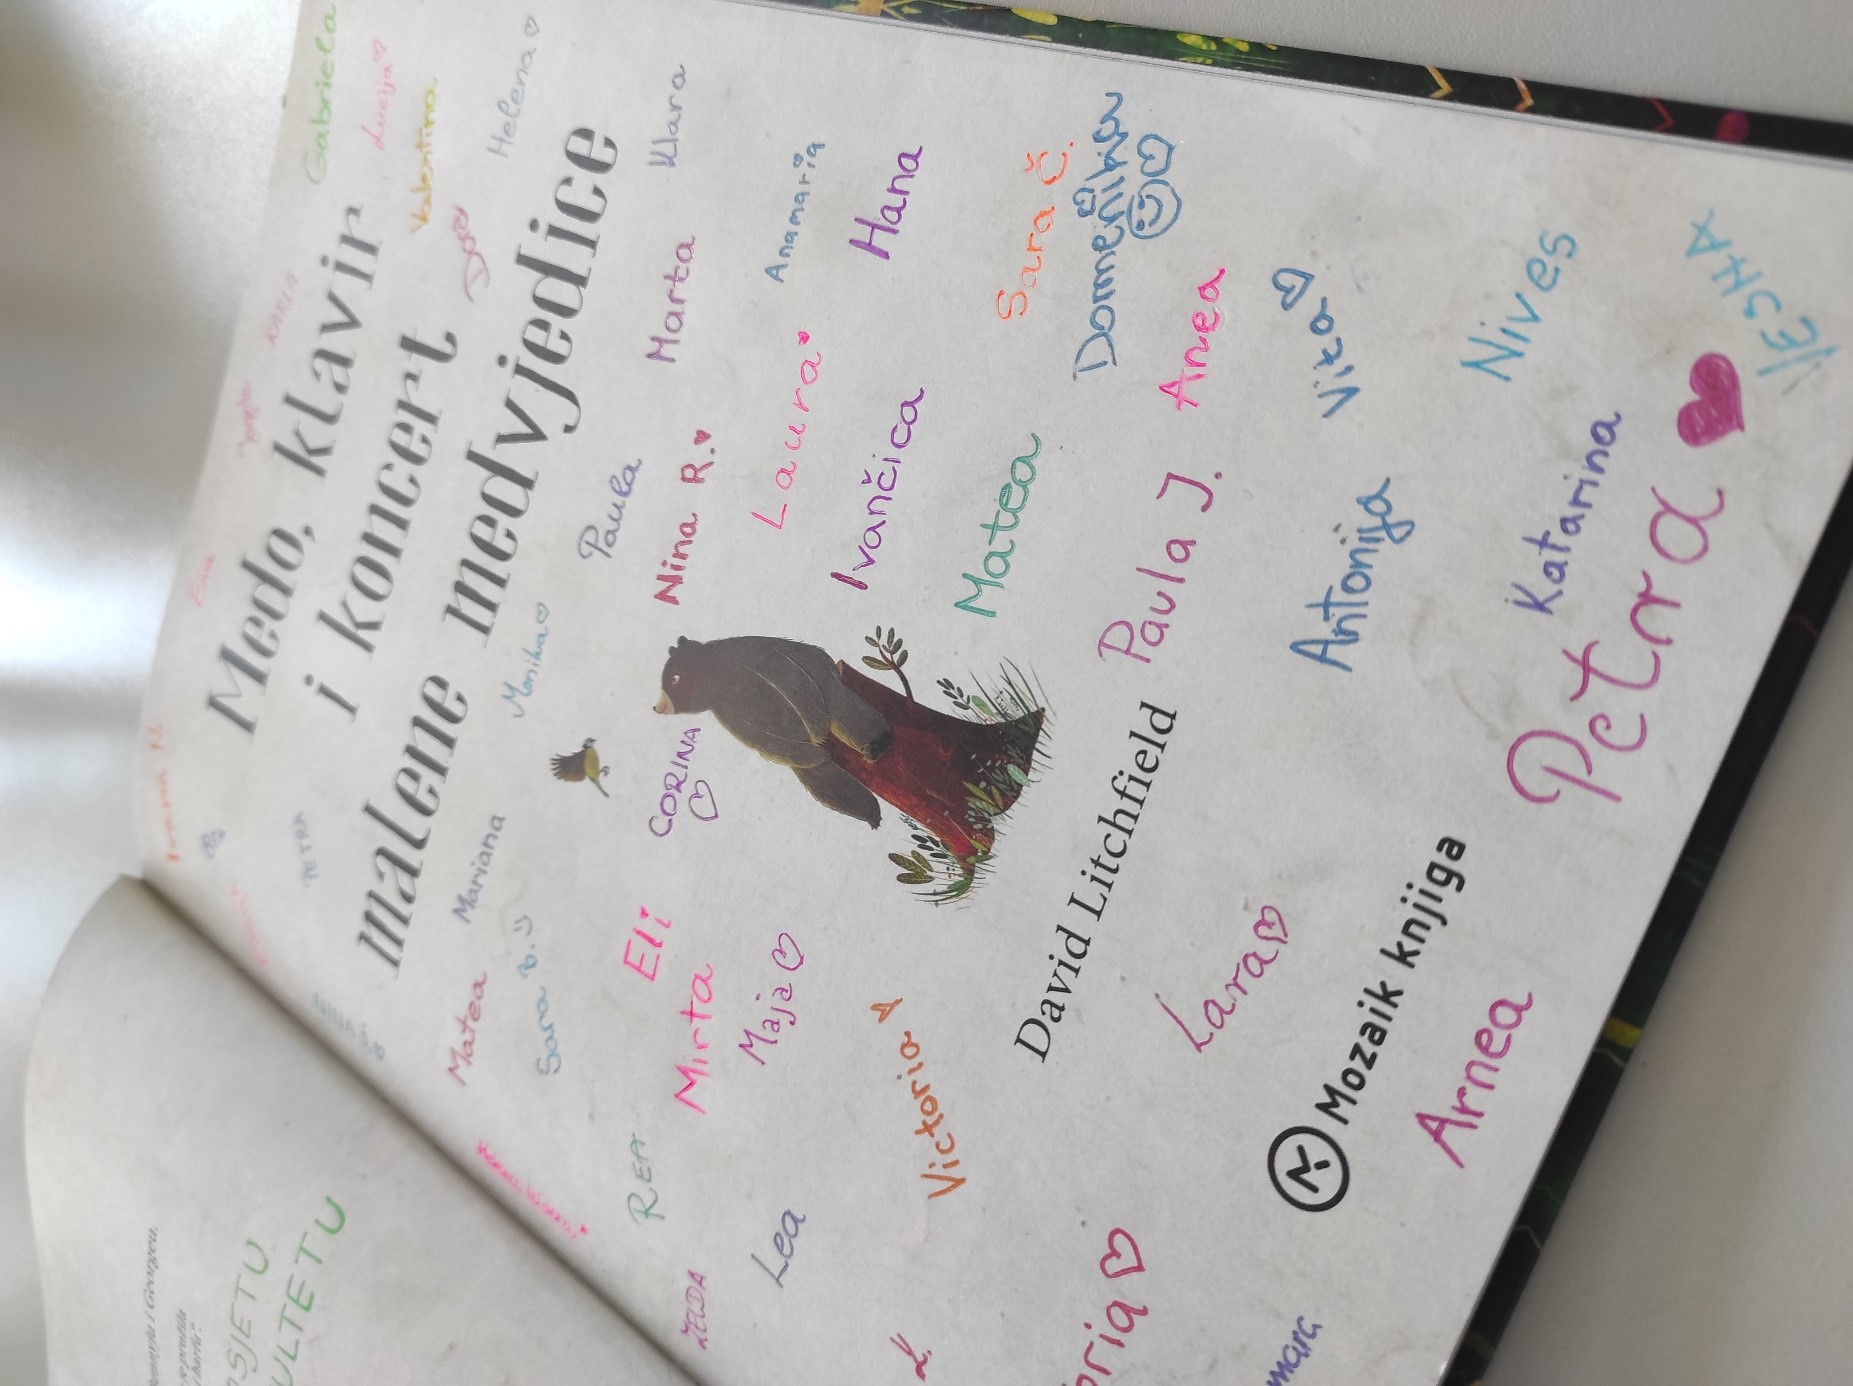 Gabriela
Lucija
Valentina
Helena
KARLA
Dora
Klara
Eva
Medo, klavir
i koncert
malene medvjedice
Marta
Anamaria
Hana
Paula
Nina R.
Laura
Ivančica
Sara Č.
Monika
Matea
Anea
Vita
Nives
VESNA
PETRA
Mariana
CORINA
Paula J.
Antonija
Katarina
Petra
Matea
Sara B.
Eli
Mirta
Maja
Victoria
David Litchfield
Lara
Mozaik knjiga
Arnea
REA
Lea